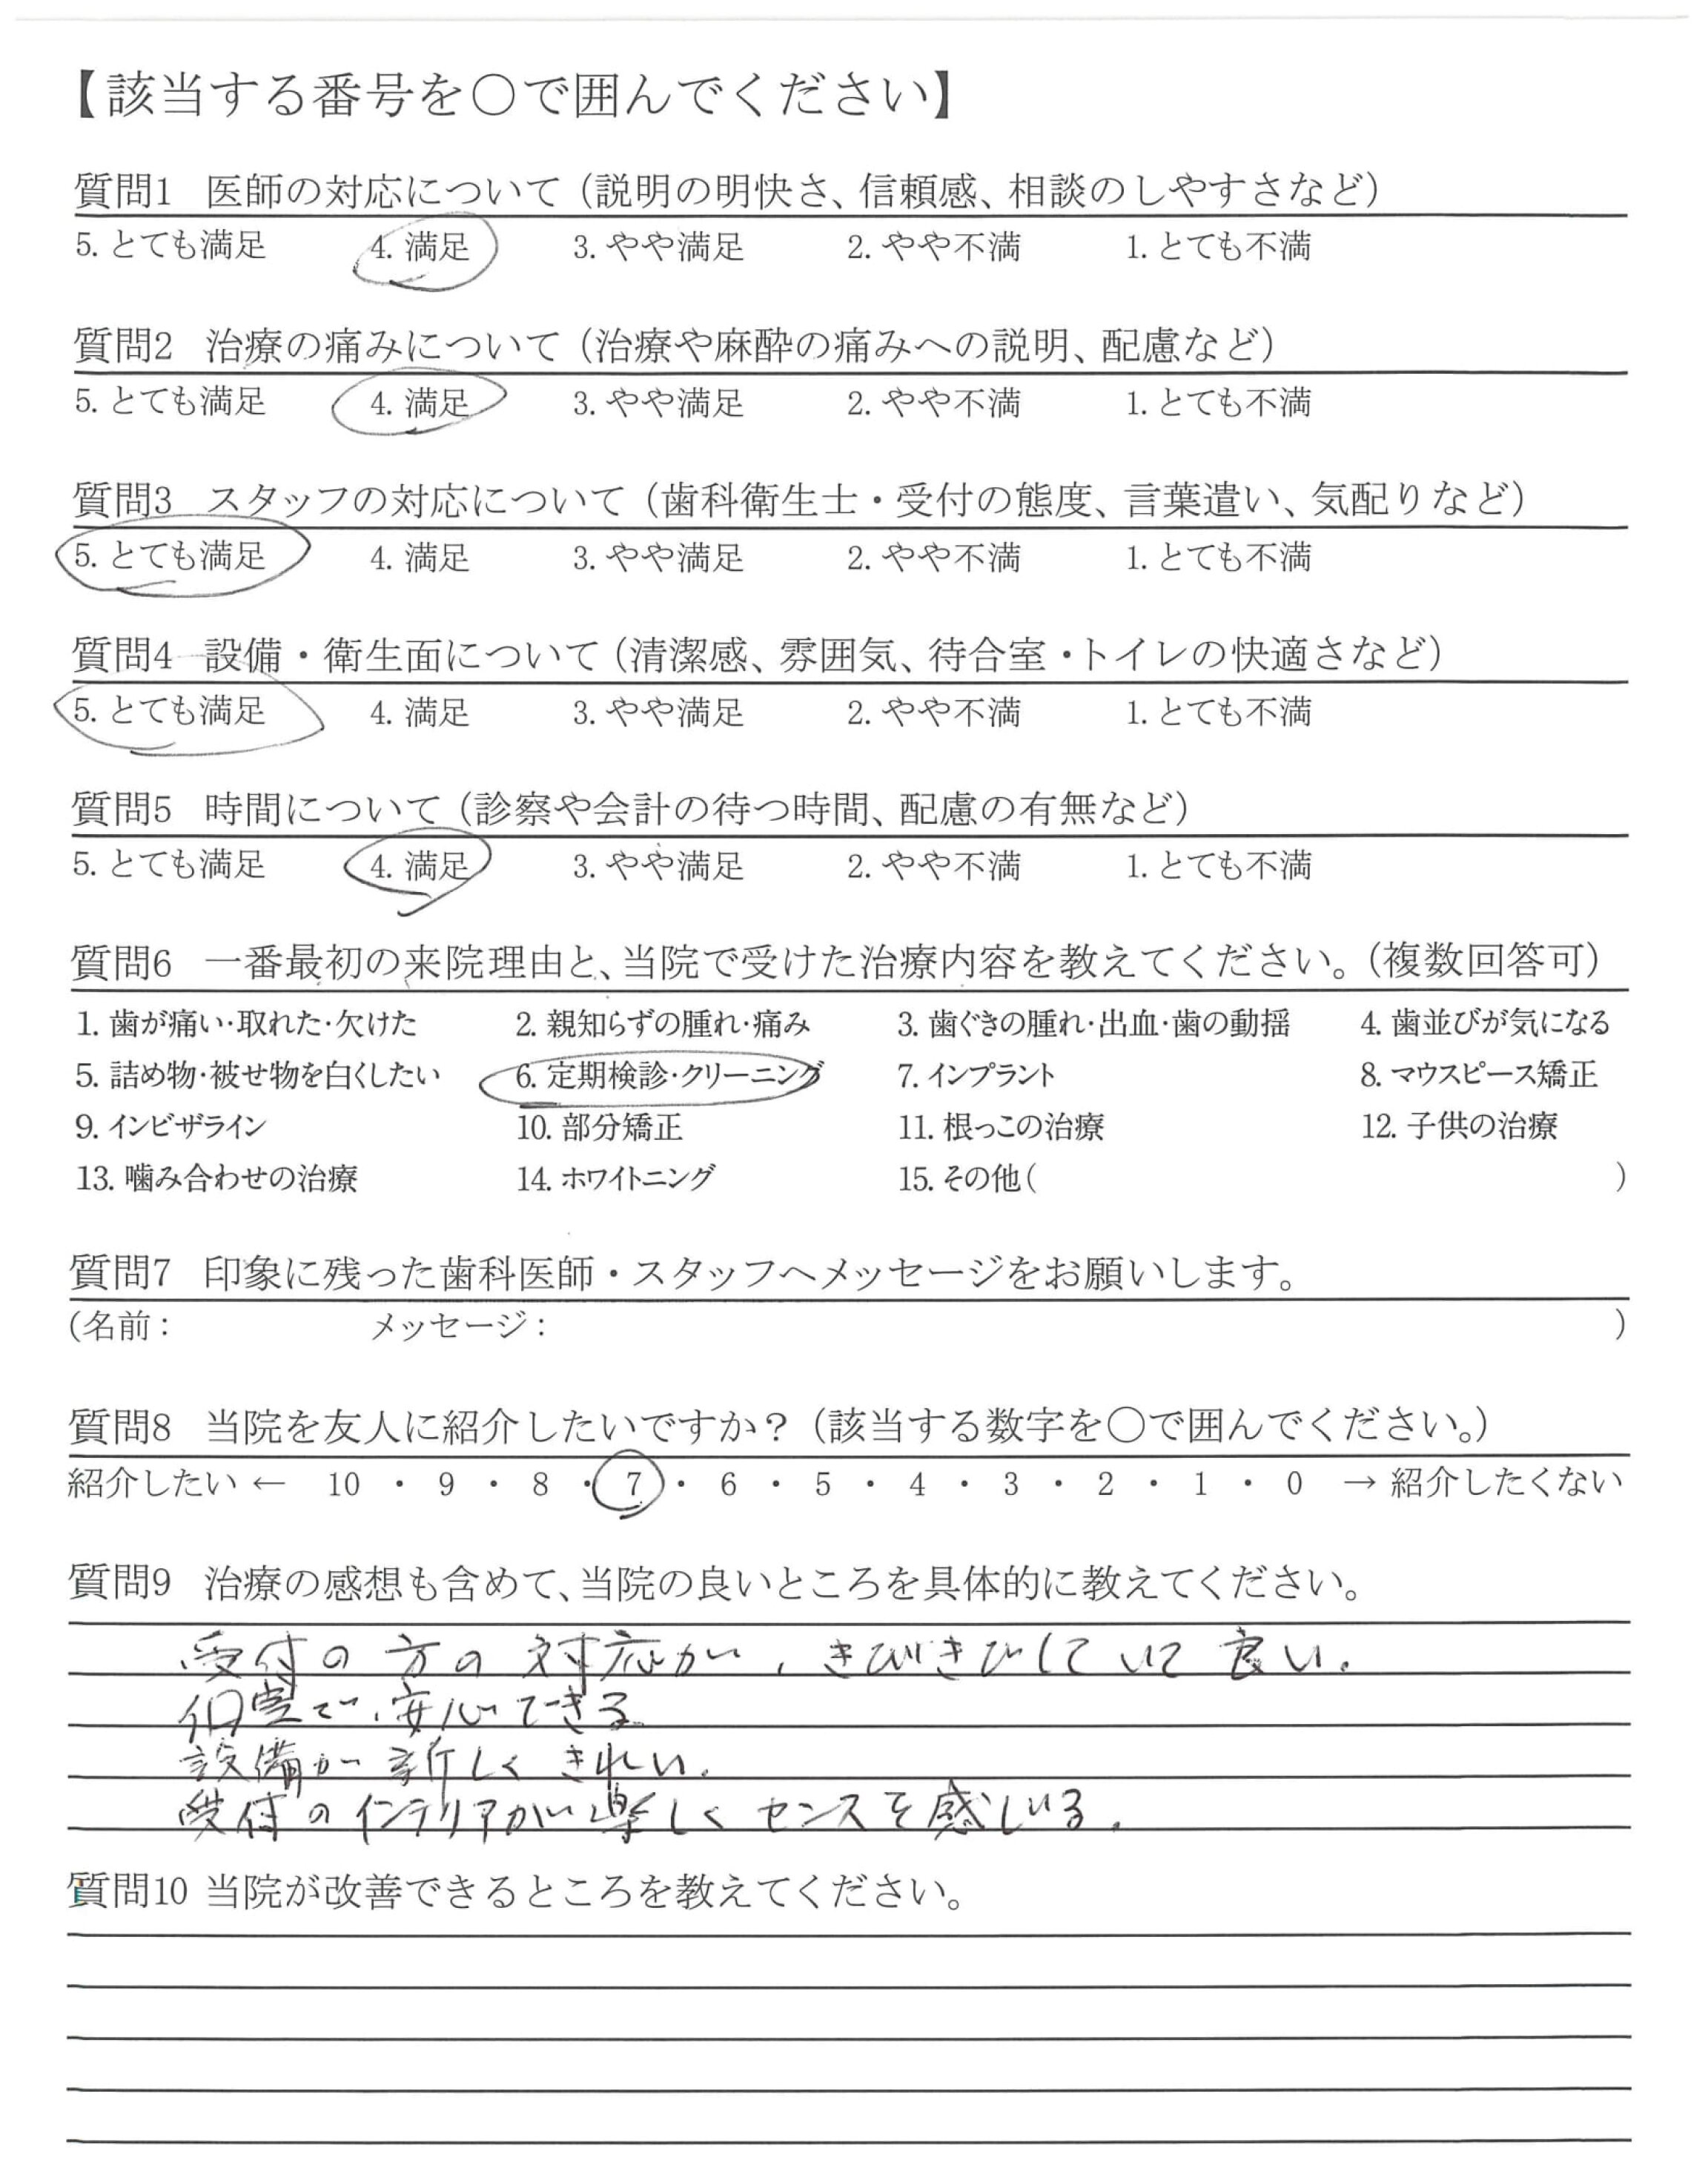 【該当する番号を〇で囲んでください】
質問1 医師の対応について（説明の明快さ、信頼感、相談のしやすさなど）
5. とても満足 4. 満足 3. やや満足 2. やや不満 1. とても不満
質問2 治療の痛みについて（治療や麻酔の痛みへの説明、配慮など）
5. とても満足 4. 満足 3. やや満足 2. やや不満 1. とても不満
質問3 スタッフの対応について（歯科衛生士・受付の態度、言葉遣い、気配りなど）
5. とても満足 4. 満足 3. やや満足 2. やや不満 1. とても不満
質問4 設備・衛生面について（清潔感、雰囲気、待合室・トイレの快適さなど）
5. とても満足 4. 満足 3. やや満足 2. やや不満 1. とても不満
質問5 時間について（診察や会計の待つ時間、配慮の有無など）
5. とても満足 4. 満足 3. やや満足 2. やや不満 1. とても不満
質問6 一番最初の来院理由と、当院で受けた治療内容を教えてください。（複数回答可）
1. 歯が痛い・取れた・欠けた 2. 親知らずの腫れ・痛み 3. 歯ぐきの腫れ・出血・歯の動揺 4. 歯並びが気になる
5. 詰め物・被せ物を白くしたい 6. 定期検診・クリーニング 7. インプラント 8. マウスピース矯正
9. インビザライン 10. 部分矯正 11. 根っこの治療 12. 子供の治療
13. 噛み合わせの治療 14. ホワイトニング 15. その他（ ）
質問7 印象に残った歯科医師・スタッフへメッセージをお願いします。
（名前： メッセージ： ）
質問8 当院を友人に紹介したいですか？（該当する数字を〇で囲んでください。）
紹介したい ← 10 ・ 9 ・ 8 ・ 7 ・ 6 ・ 5 ・ 4 ・ 3 ・ 2 ・ 1 ・ 0 → 紹介したくない
質問9 治療の感想も含めて、当院の良いところを具体的に教えてください。
受付の方の対応が、きびきびしていて良い。
個室で、安心できる
設備が新しくきれい。
受付のインテリアが楽しくセンスを感じいる。
質問10 当院が改善できるところを教えてください。